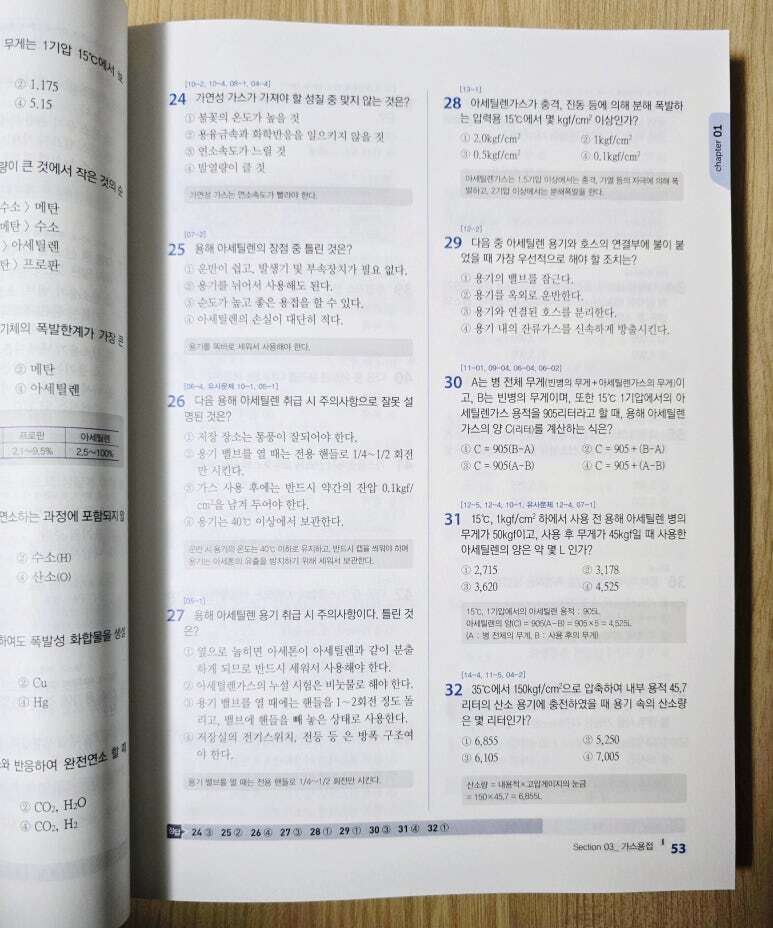 무게는 1기압 15℃에서 보
② 1.175
④ 5.15
량이 큰 것에서 작은 것의 순
수소 〉 메탄
메탄 〉 수소
〉 아세틸렌
탄 〉 프로판
기체의 폭발한계가 가장 큰
② 메탄
④ 아세틸렌
프로판 아세틸렌
2.1~9.5% 2.5~100%
연소하는 과정에 포함되지 않
② 수소(H)
④ 산소(O)
하여도 폭발성 화합물을 생성
② Cu
④ Hg
와 반응하여 완전연소 할 때
② CO₂, H₂O
④ CO₂, H₂
[10-2, 10-4, 08-1, 04-4]
24 가연성 가스가 가져야 할 성질 중 맞지 않는 것은?
① 불꽃의 온도가 높을 것
② 용융금속과 화학반응을 일으키지 않을 것
③ 연소속도가 느릴 것
④ 발열량이 클 것
가연성 가스는 연소속도가 빨라야 한다.
[07-2]
25 용해 아세틸렌의 장점 중 틀린 것은?
① 운반이 쉽고, 발생기 및 부속장치가 필요 없다.
② 용기를 뉘어서 사용해도 된다.
③ 순도가 높고 좋은 용접을 할 수 있다.
④ 아세틸렌의 손실이 대단히 적다.
용기를 똑바로 세워서 사용해야 한다.
[06-4, 유사문제 10-1, 05-1]
26 다음 용해 아세틸렌 취급 시 주의사항으로 잘못 설
명된 것은?
① 저장 장소는 통풍이 잘되어야 한다.
② 용기 밸브를 열 때는 전용 핸들로 1/4~1/2 회전
만 시킨다.
③ 가스 사용 후에는 반드시 약간의 잔압 0.1kgf/
cm²을 남겨 두어야 한다.
④ 용기는 40℃ 이상에서 보관한다.
운반 시 용기의 온도는 40℃ 이하로 유지하고, 반드시 캡을 씌워야 하며
용기는 아세톤의 유출을 방지하기 위해 세워서 보관한다.
[05-1]
27 용해 아세틸렌 용기 취급 시 주의사항이다. 틀린 것
은?
① 옆으로 눕히면 아세톤이 아세틸렌과 같이 분출
하게 되므로 반드시 세워서 사용해야 한다.
② 아세틸렌가스의 누설 시험은 비눗물로 해야 한다.
③ 용기 밸브를 열 때에는 핸들을 1~2회전 정도 돌
리고, 밸브에 핸들을 빼 놓은 상태로 사용한다.
④ 저장실의 전기스위치, 전등 등 은 방폭 구조여
야 한다.
용기 밸브를 열 때는 전용 핸들로 1/4~1/2 회전만 시킨다.
[13-1]
28 아세틸렌가스가 충격, 진동 등에 의해 분해 폭발하
는 압력용 15℃에서 몇 kgf/cm² 이상인가?
① 2.0kgf/cm² ② 1kgf/cm²
③ 0.5kgf/cm² ④ 0.1kgf/cm²
아세틸렌가스는 1.5기압 이상에서는 충격, 가열 등의 자극에 의해 폭
발하고, 2기압 이상에서는 분해폭발을 한다.
[12-2]
29 다음 중 아세틸렌 용기와 호스의 연결부에 불이 붙
었을 때 가장 우선적으로 해야 할 조치는?
① 용기의 밸브를 잠근다.
② 용기를 옥외로 운반한다.
③ 용기와 연결된 호스를 분리한다.
④ 용기 내의 잔류가스를 신속하게 방출시킨다.
[11-01, 09-04, 06-04, 06-02]
30 A는 병 전체 무게(빈병의 무게+아세틸렌가스의 무게)이
고, B는 빈병의 무게이며, 또한 15℃ 1기압에서의 아
세틸렌가스 용적을 905리터라고 할 때, 용해 아세틸렌
가스의 양 C(리터)를 계산하는 식은?
① C = 905(B-A) ② C = 905+(B-A)
③ C = 905(A-B) ④ C = 905+(A-B)
[12-5, 12-4, 10-1, 유사문제 12-4, 07-1]
31 15℃, 1kgf/cm² 하에서 사용 전 용해 아세틸렌 병의
무게가 50kgf이고, 사용 후 무게가 45kgf일 때 사용한
아세틸렌의 양은 약 몇 L 인가?
① 2,715 ② 3,178
③ 3,620 ④ 4,525
15℃, 1기압에서의 아세틸렌 용적 : 905L
아세틸렌의 양(C) = 905(A-B) = 905×5 = 4,525L
(A : 병 전체의 무게, B : 사용 후의 무게)
[14-4, 11-5, 04-2]
32 35℃에서 150kgf/cm²으로 압축하여 내부 용적 45.7
리터의 산소 용기에 충전하였을 때 용기 속의 산소량
은 몇 리터인가?
① 6,855 ② 5,250
③ 6,105 ④ 7,005
산소량 = 내용적×고압게이지의 눈금
= 150×45.7 = 6,855L
chapter 01
정답 24 ③ 25 ② 26 ④ 27 ③ 28 ① 29 ① 30 ③ 31 ④ 32 ①
Section 03_ 가스용접 53